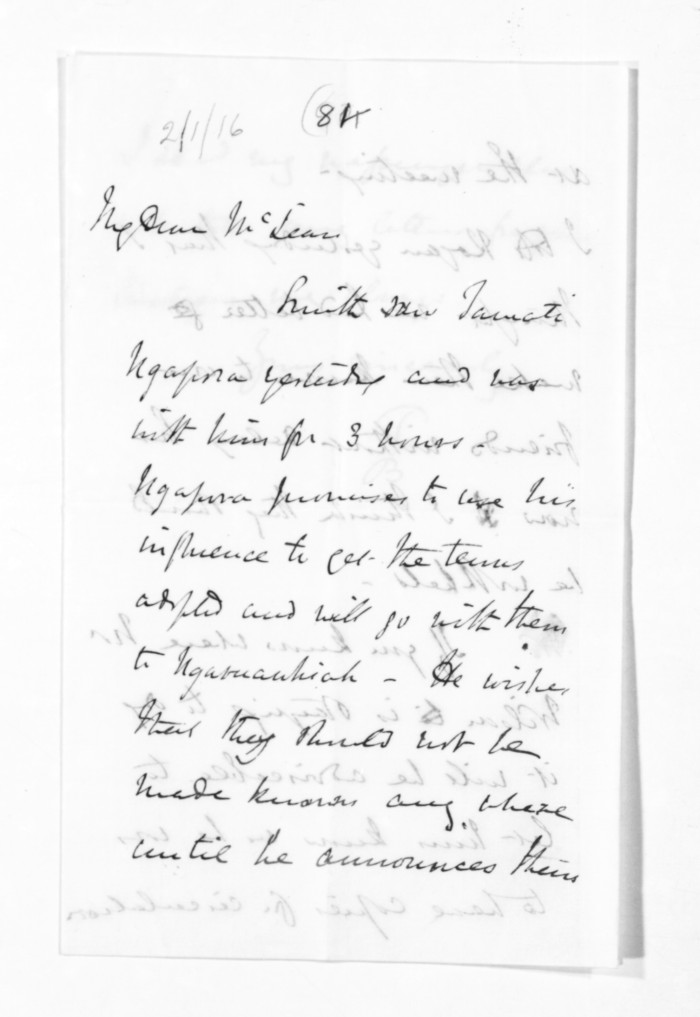 2/1/16
(84
My Dear McLean
Smith saw Tamati
Ngapora yesterday and was
with him for 3 hours -
Ngapora promises to use his
influence to get the terms
adopted and will go with them
to Ngaruawhiah - He wishes
that they should not be
made known any where
until he announces them